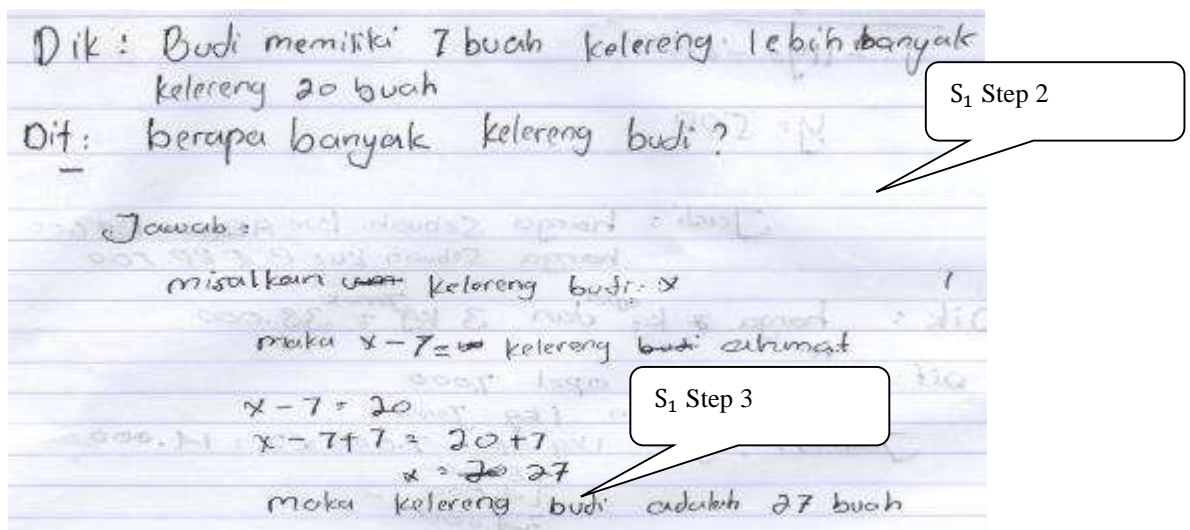 Dik : Budi memiliki 7 buah kelereng. lebih banyak
kelereng 20 buah
S₁ Step 2
Dit : berapa banyak kelereng budi ?
Jawab :
misalkan kelereng budi = x
maka x - 7 = kelereng budi
x - 7 = 20
S₁ Step 3
x - 7 + 7 = 20 + 7
x = 20 27
maka kelereng budi adalah 27 buah